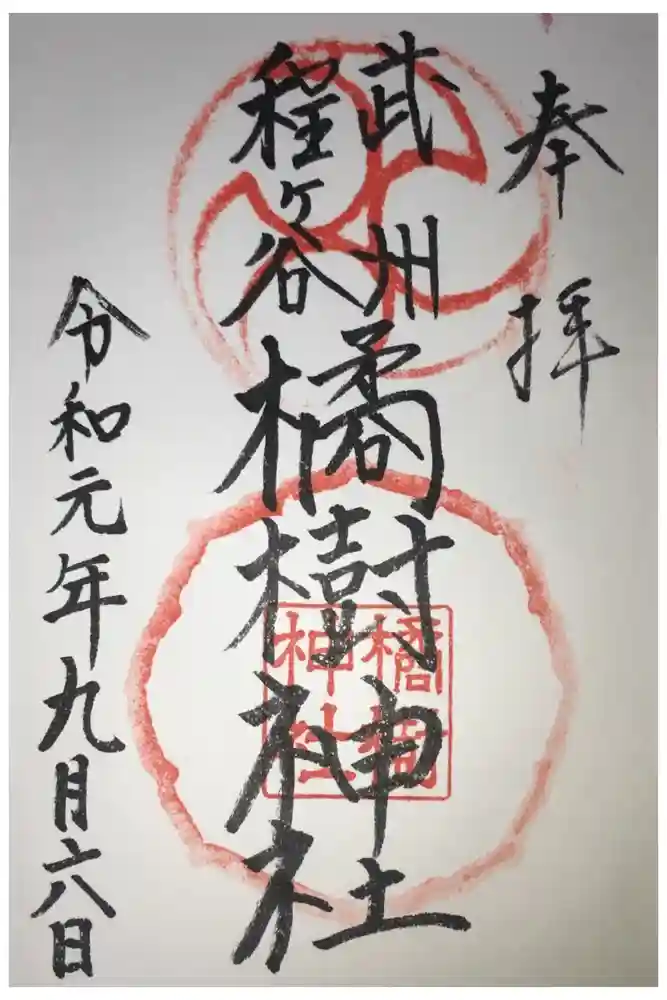 奉拝
武州
程ヶ谷
橘樹神社
橘樹
神社
令和元年九月六日